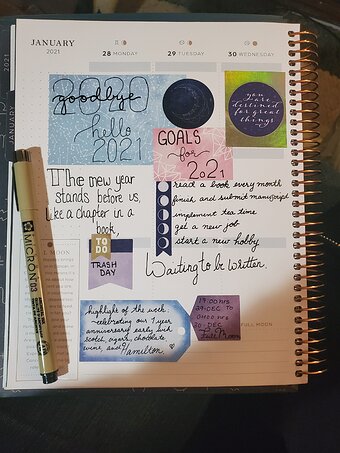 JANUARY
2021
28 MONDAY
29 TUESDAY
30 WEDNESDAY
2020
goodbye
hello
2021
you are
destined
for great
things
GOALS
for
2021
read a book every month
finish and submit manuscript
implement tea time
get a new job
start a new hobby
The new year
stands before us,
like a chapter in a
book,
Waiting to be written
TO
DO
TRASH
DAY
L MOON
highlight of the week:
~celebrating our 1 year
anniversary early with
scotch, agave, chocolate
wine, and
Hamilton.
29-DEC TO
30-DEC
Full Moon
FULL MOON
MICRON 03
2021
JANUARY